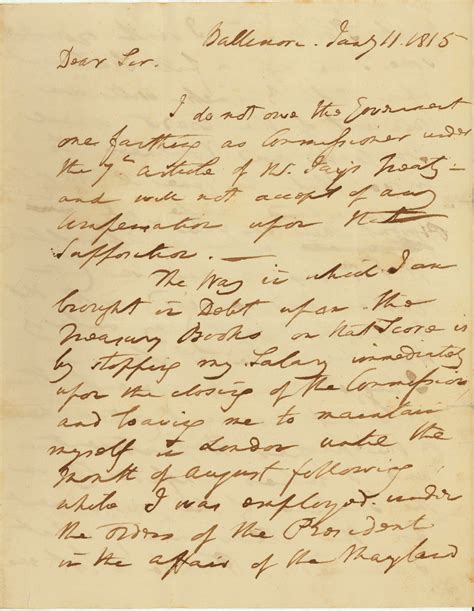 Baltimore. Jany 11. 1815
Dear Sir.
I do not owe the Government
one farthing as Commissioner under
the 7th article of Mr. Jay's Treaty –
and will not accept of any
Compensation upon that
Supposition. —
The Way in which I am
brought in Debt upon the
Treasury Books on that Score is
by stopping my Salary immediately
upon the closing of the Commission,
and leaving me to maintain
myself in London until the
Month of August following
while I was employed under
the orders of the President
in the affair of the Maryland